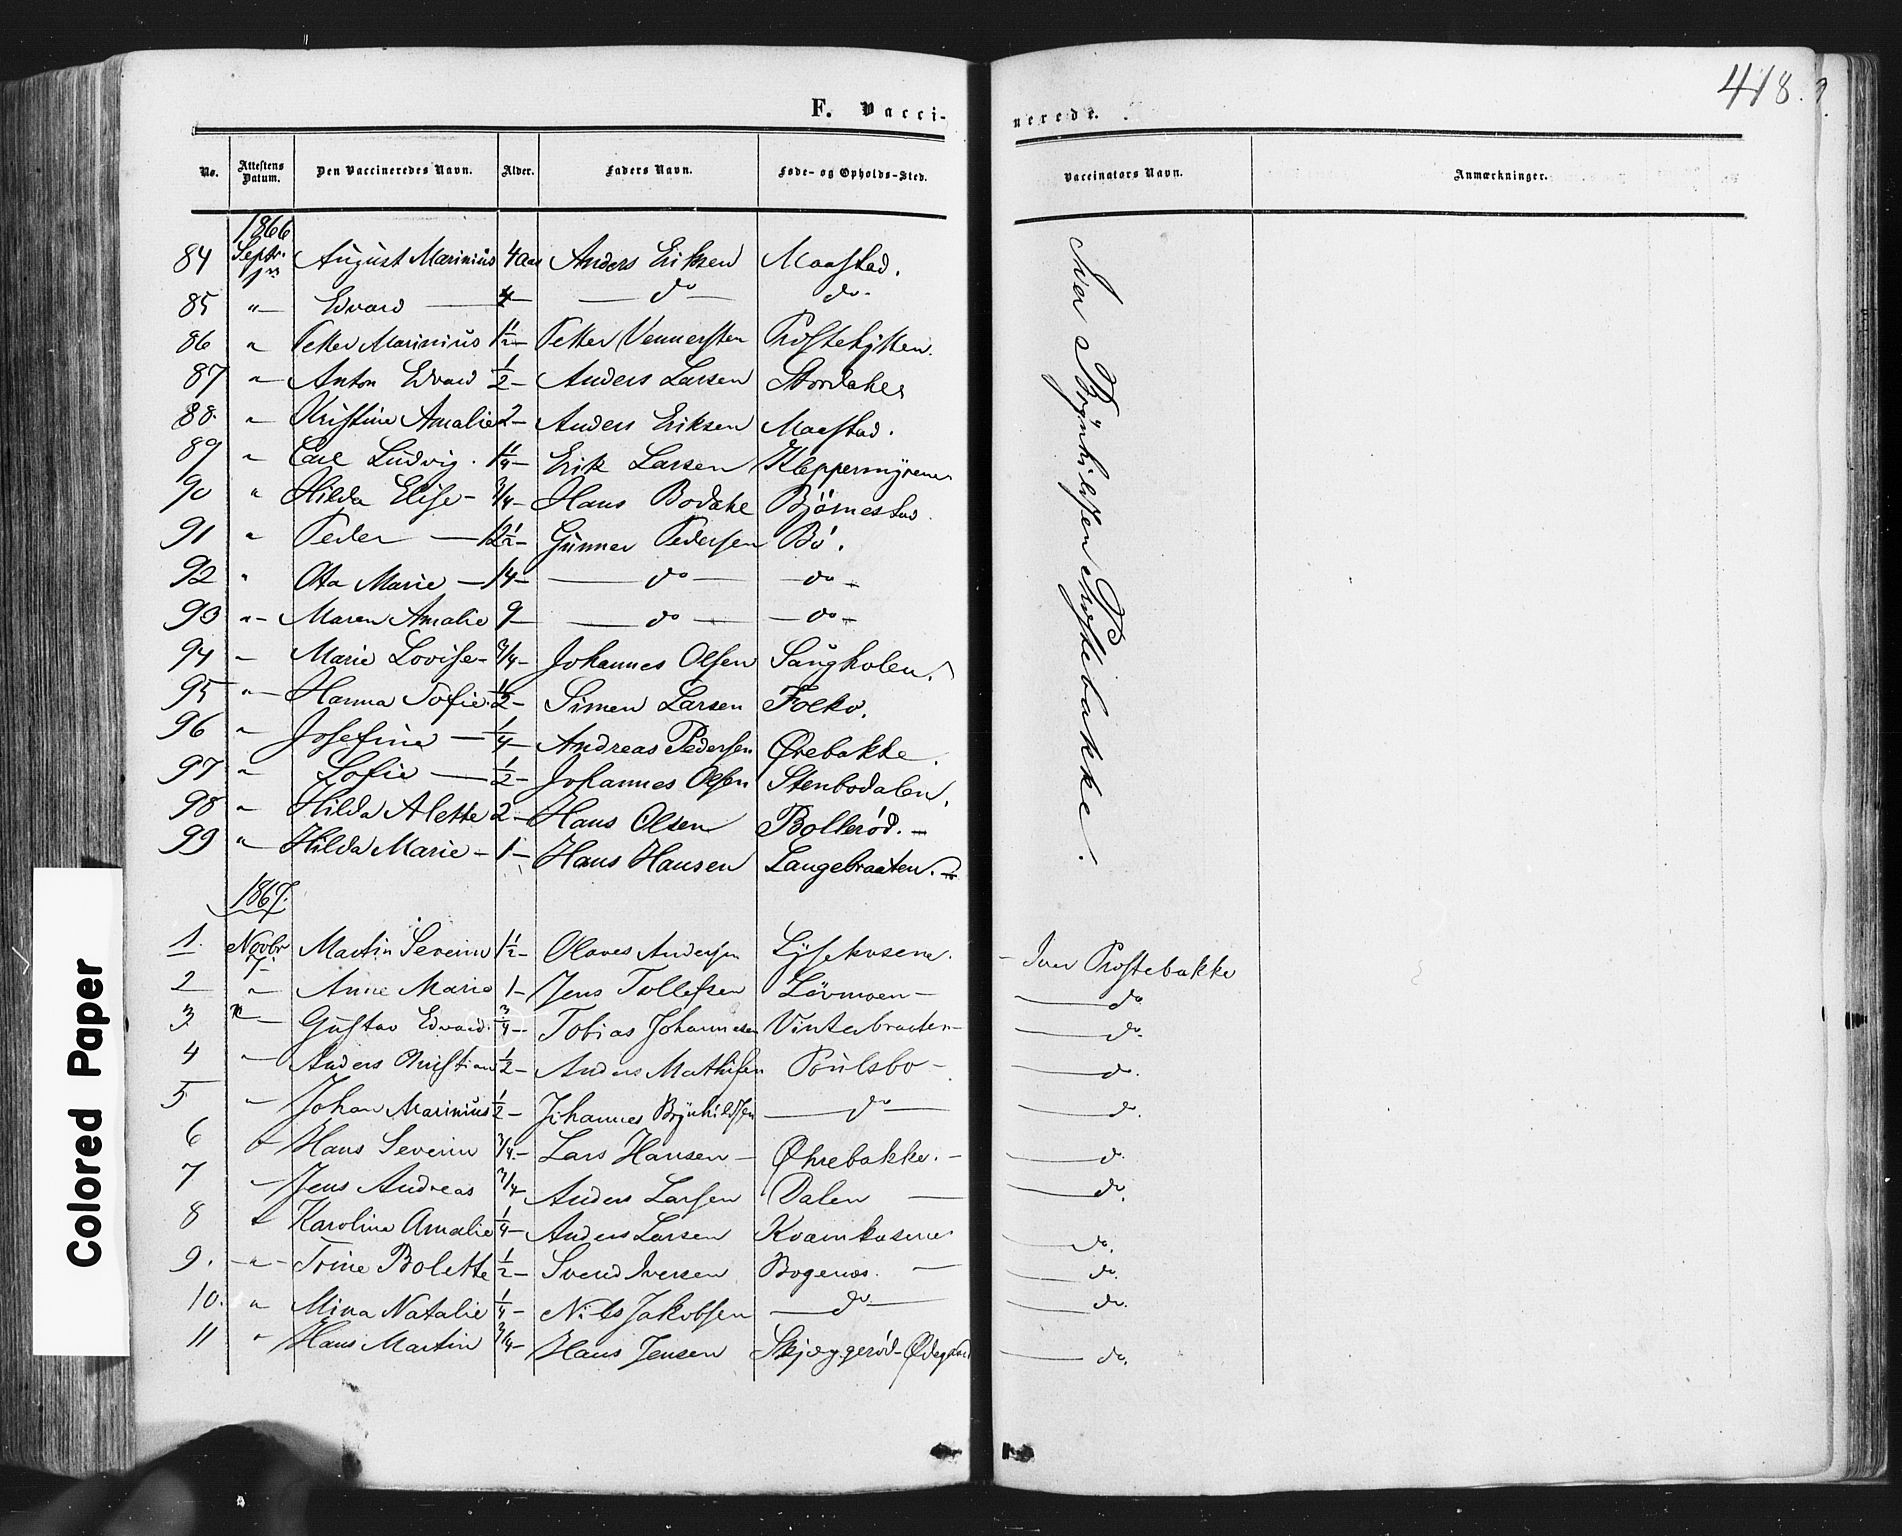 418.
F. Vacci-
nerede.
No. Attestens Datum. Den Vaccineredes Navn. Alder. Faders Navn. Føde- og Opholds-Sted. Vaccinators Navn. Anmærkninger.
1866
84 Septr. August Marinius 4 aar Anders Eriksen Maastad.
85 " Edvard — 4 — do — do.
86 " Petter Marinius 1½ Petter Vennersten Prestehytten.
87 " Anton Edvard ½ – Anders Larsen Stordaker
88. " Kristine Amalie 2 – Anders Eriksen Maastad.
89 " Carl Ludvig. 1¼ – Erik Larsen Kleppermyrene
90 " Hilda Elise – ¾ – Hans Bodahl Bjørnestad
91 " Peder — 12½ – Gunner Pedersen Bø.
92 " Ota Marie — 14 – — do — – do –
93 " – Maren Amalie 9 – — do — – do –
94 – Marie Lovise – ¾ – Johannes Olsen Saugkolen.
95 " – Hanna Sofie. ½ – Simen Larsen Folkø.
96 " Josefine — ¼ – Andreas Pedersen Ørebakke.
97 " Sofie — ½ – Johannes Olsen Stenbodalen.
98 " Hilda Alette 2 – Hans Olsen Bollerød. –
99 " Hilda Marie – 1 – Hans Hansen Langebraaten.
Iver Brynhildsen Prestebakke.
1867.
1. Novbr 7 – Martin Severin 1½ – Olaves Andersen Lysekasene. – Iver Prestebakke
2 " Anne Marie 1 – Jens Tollefsen Løvmoen – — do
3. " – Gustav Edvard. ¾ – Tobias Johannesen Vinterbraaten – — do.
4 " Anders Christian ½ – Anders Mathisen Poulsbo – — do.
5 – Johan Marinius ½ – Johannes Brynhildsen — do — — do.
6 " Hans Severin ¾ – Lars Hansen – Øhrebakke. – — do.
7 – Jens Andreas ¾ Anders Larsen Dalen — — do.
8 " Karoline Amalie ¼ – Anders Larsen Kvamkasene — do.
9. – " – Trine Bolette ½ – Svend Iversen Bogenæs. — — do.
10. " Mina Natalie ¼ – Nils Jakobsen — do — — do.
11 " Hans Martin ¾ – Hans Jensen Skjeggerød-Ødegaard — do.
Colored Paper